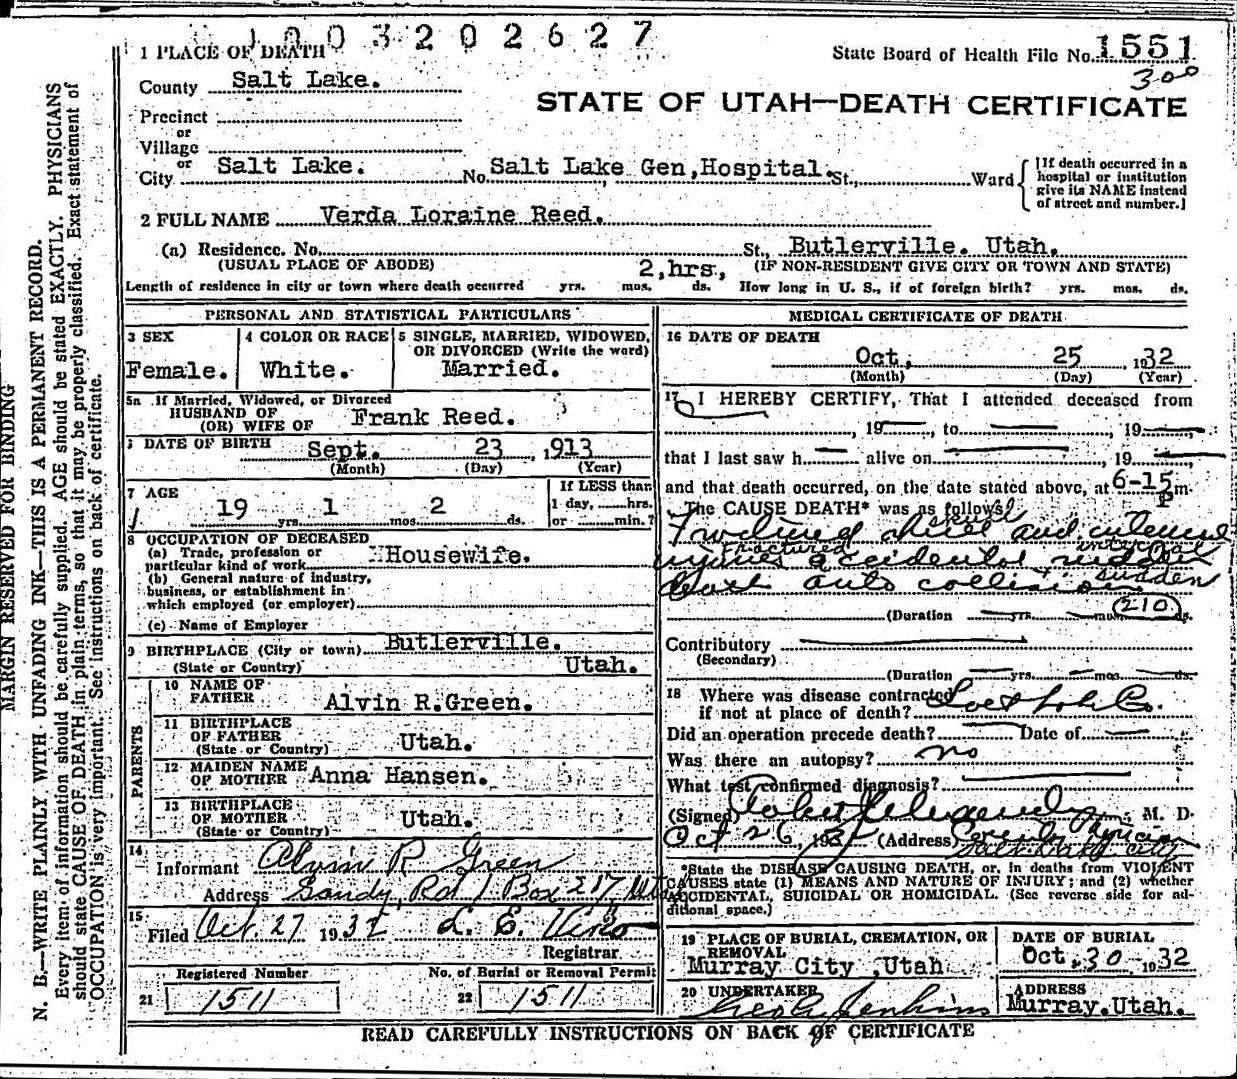 1003202627
1 PLACE OF DEATH
State Board of Health File No. 1551
300
County Salt Lake.
STATE OF UTAH—DEATH CERTIFICATE
Precinct
or
Village
or
City Salt Lake. No. Salt Lake Gen, Hospital. St., Ward
[If death occurred in a
hospital or institution
give its NAME instead
of street and number.]
2 FULL NAME Verda Loraine Reed.
(a) Residence. No. St., Butlerville. Utah.
(USUAL PLACE OF ABODE) 2,hrs, (IF NON-RESIDENT GIVE CITY OR TOWN AND STATE)
Length of residence in city or town where death occurred yrs. mos. ds. How long in U. S., if of foreign birth? yrs. mos. ds.
PERSONAL AND STATISTICAL PARTICULARS
3 SEX
Female.
4 COLOR OR RACE
White.
5 SINGLE, MARRIED, WIDOWED,
OR DIVORCED (Write the word)
Married.
5a If Married, Widowed, or Divorced
HUSBAND OF
(OR) WIFE OF Frank Reed.
DATE OF BIRTH Sept. 23 , 913
(Month) (Day) (Year)
7 AGE
19 yrs. 1 mos. 2 ds.
If LESS than
1 day, hrs.
or min.?
8 OCCUPATION OF DECEASED
(a) Trade, profession or
particular kind of work Housewife.
(b) General nature of industry,
business, or establishment in
which employed (or employer)
(c) Name of Employer
9 BIRTHPLACE (City or town) Butlerville.
(State or Country) Utah.
PARENTS
10 NAME OF
FATHER Alvin R.Green.
11 BIRTHPLACE
OF FATHER
(State or Country) Utah.
12 MAIDEN NAME
OF MOTHER Anna Hansen.
13 BIRTHPLACE
OF MOTHER
(State or Country) Utah.
14
Informant Alvin R Green
Address Sandy, Rd 1 Box 217
15
Filed Oct. 27 1932 L. E.
Registrar
Registered Number
21 1511
No. of Burial or Removal Permit
22 1511
MEDICAL CERTIFICATE OF DEATH
16 DATE OF DEATH
Oct, 25 1932
(Month) (Day) (Year)
17 I HEREBY CERTIFY, That I attended deceased from
, 19 , to , 19
that I last saw h alive on , 19 ,
and that death occurred, on the date stated above, at 6-15 P m.
The CAUSE DEATH* was as follows:
Fractured skull and internal
skull
injuries accidental sudden
fractured internal
auto collision sudden
(Duration yrs. mos. ds.
210
Contributory
(Secondary)
(Duration yrs. mos. ds.
18 Where was disease contracted
if not at place of death? Co.
Did an operation precede death? Date of
Was there an autopsy? no
What test confirmed diagnosis?
(Signed) Robert M. D.
Oct 26, 1932 (Address) County Physician
Salt Lake City
*State the DISEASE CAUSING DEATH, or, in deaths from VIOLENT
CAUSES state (1) MEANS AND NATURE OF INJURY; and (2) whether
ACCIDENTAL, SUICIDAL OR HOMICIDAL. (See reverse side for ad-
ditional space.)
19 PLACE OF BURIAL, CREMATION, OR
REMOVAL
Murray City ,Utah
DATE OF BURIAL
Oct, 30 1932
20 UNDERTAKER
Jenkins
ADDRESS
Murray.Utah.
READ CAREFULLY INSTRUCTIONS ON BACK OF CERTIFICATE
MARGIN RESERVED FOR BINDING
N. B.—WRITE PLAINLY WITH UNFADING INK—THIS IS A PERMANENT RECORD.
Every item of information should be carefully supplied. AGE should be stated EXACTLY. PHYSICIANS
should state CAUSE OF DEATH in plain terms, so that it may be properly classified. Exact statement of
OCCUPATION is very important. See instructions on back of certificate.